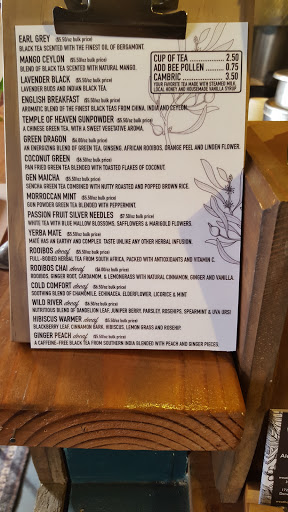 EARL GREY ($5.50/oz bulk price)
BLACK TEA SCENTED WITH THE FINEST OIL OF BERGAMOT.
MANGO CEYLON ($5.50/oz bulk price)
BLACK TEA SCENTED WITH NATURAL MANGO.
LAVENDER BLACK ($5.50/oz bulk price)
LAVENDER BUDS AND INDIAN BLACK TEA.
ENGLISH BREAKFAST ($5.50/oz bulk price)
AROMATIC BLEND OF THE FINEST BLACK TEAS FROM CHINA, INDIA AND CEYLON.
TEMPLE OF HEAVEN GUNPOWDER ($5.50/oz bulk price)
A CHINESE GREEN TEA, WITH A SWEET VEGETATIVE AROMA.
GREEN DRAGON ($6.00/oz bulk price)
AN ENERGIZING BLEND OF GREEN TEA, GINSENG, AFRICAN ROOIBOS, ORANGE PEEL AND LINDEN FLOWER.
COCONUT GREEN
PAN FIRED GREEN TEA BLENDED WITH TOASTED FLAKES OF COCONUT.
GEN MAICHA ($5.50/oz bulk price)
SENCHA GREEN TEA COMBINED WITH NUTTY ROASTED AND POPPED BROWN RICE.
MORROCCAN MINT ($5.50/oz bulk price)
GUN POWDER GREEN TEA BLENDED WITH PEPPERMINT.
PASSION FRUIT SILVER NEEDLES ($7.50/oz bulk price)
WHITE TEA WITH BLUE MALLOW BLOSSOMS, SAFFLOWERS & MARIGOLD FLOWERS.
YERBA MATE ($5.50/oz bulk price)
MATE HAS AN EARTHY AND COMPLEX TASTE UNLIKE ANY OTHER HERBAL INFUSION.
ROOIBOS decaf ($5.50/oz bulk price)
FULL-BODIED HERBAL TEA FROM SOUTH AFRICA, PACKED WITH ANTIOXIDANTS AND VITAMIN C.
ROOIBOS CHAI decaf ($6.00/oz bulk price)
ROOIBOS, GINGER ROOT, CARDAMOM, & LEMONGRASS WITH NATURAL CINNAMON, GINGER AND VANILLA.
COLD COMFORT decaf ($5.50/oz bulk price)
SOOTHING BLEND OF CHAMOMILE, ECHINACEA, ELDERFLOWER, LICORICE & MINT
WILD RIVER decaf ($7.50/oz bulk price)
NUTRITIOUS BLEND OF DANDELION LEAF, JUNIPER BERRY, PARSLEY, ROSEHIPS, SPEARMINT & UVA URSI
HIBISCUS WARMER decaf ($5.50/oz bulk price)
BLACKBERRY LEAF, CINNAMON BARK, HIBISCUS, LEMON GRASS AND ROSEHIP.
GINGER PEACH decaf ($5.50/oz bulk price)
A CAFFEINE-FREE BLACK TEA FROM SOUTHERN INDIA BLENDED WITH PEACH AND GINGER PIECES.
CUP OF TEA 2.50
ADD BEE POLLEN 0.75
CAMBRIC 3.50
YOUR FAVORITE TEA MADE WITH STEAMED MILK,
LOCAL HONEY AND HOUSEMADE VANILLA SYRUP